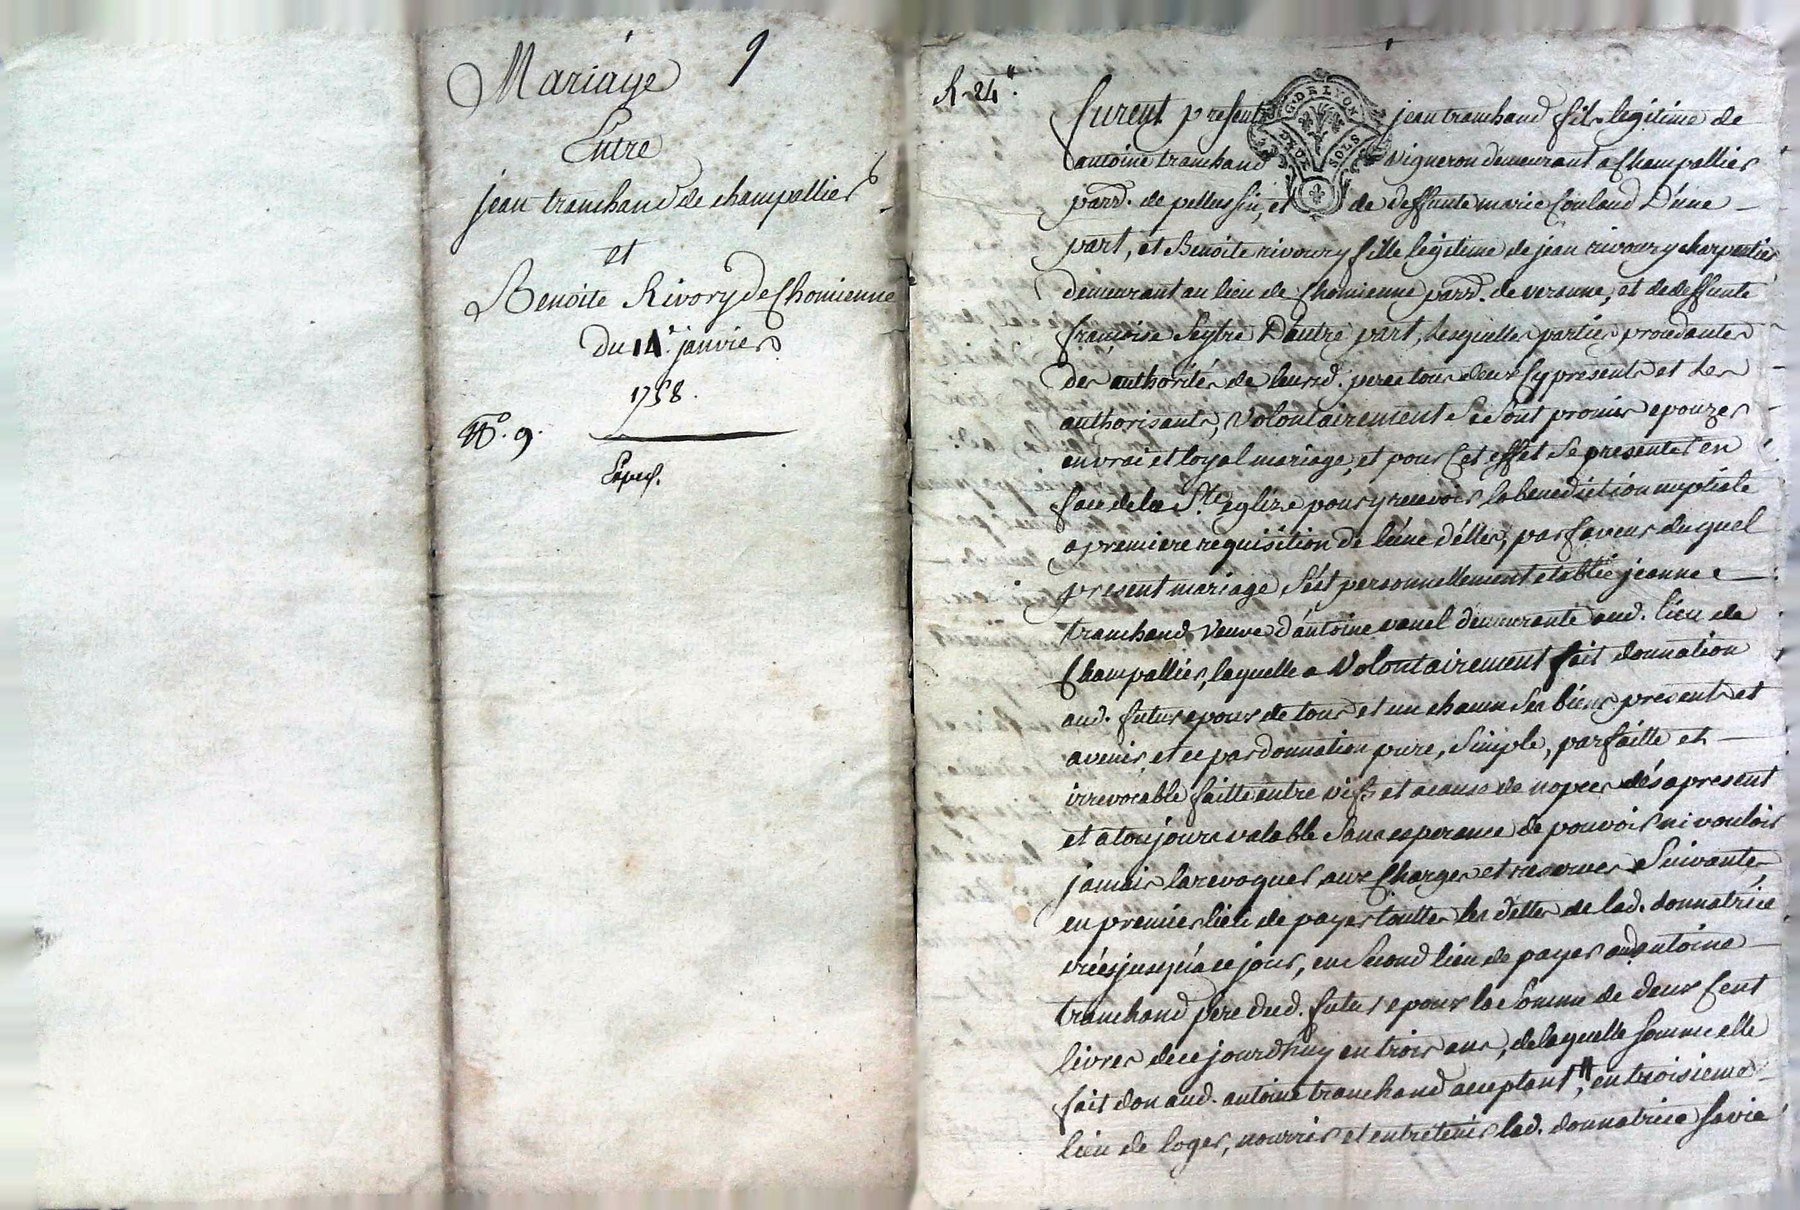 Mariage 9
Entre
jean tranchand de champallier
et
Benoite Rivory de Chomienne
du 14e. janvier
1758.
No. 9.
Exped.
R. 24.
furent presents jean tranchand fils legitime de
G. DE LYON
DEUX SOLS
antoine tranchand vigneron demeurant a Champallier
parr. de pellussin, et de deffunte marie Couland D'une
part, et Benoite rivoury fille legitime de jean rivoury charpentier
demeurant au lieu de Chomienne parr. de veranne, et de deffunte
françoise Seytre D'autre part, lesquelles parties procedantes
des authorités de leursd. peres tous deux Cy presents et les
authorisants, Volontairement Se Sont promis epouzer
en vrai et loyal mariage, et pour Cet effet Se presenter en
face de la Ste. eglize pour y recevoir la benediction nuptiale
a premiere requisition de l'une d'elles, par faveur duquel
present mariage S'est personnellement etablie jeanne
tranchand Veuve d'antoine vanel demeurante aud. lieu de
Champallier, laquelle a Volontairement fait donnation
aud. futur epoux de tous et un chacun Ses biens presents et
avenir, et ce par donnation pure, Simple, parfaitte et
irrevocable faitte entre vifs et acause de nopces dés apresent
et a toujours valable Sans esperance de pouvoir ni vouloir
jamais la revoquer aux Charges et reserves Suivantes,
en premier lieu de payer touttes les dettes de lad. donnatrice
créés jusqu'a ce jour, en Second lieu de payer aud. antoine
tranchand pere dud. futur epoux la Somme de deux Cent
livres de ce jourdhuy en trois ans, de laquelle Somme elle
fait don aud. antoine tranchand acceptant, # en troisieme
lieu de loger, nourrir et entretenir lad. donnatrice Sa vie